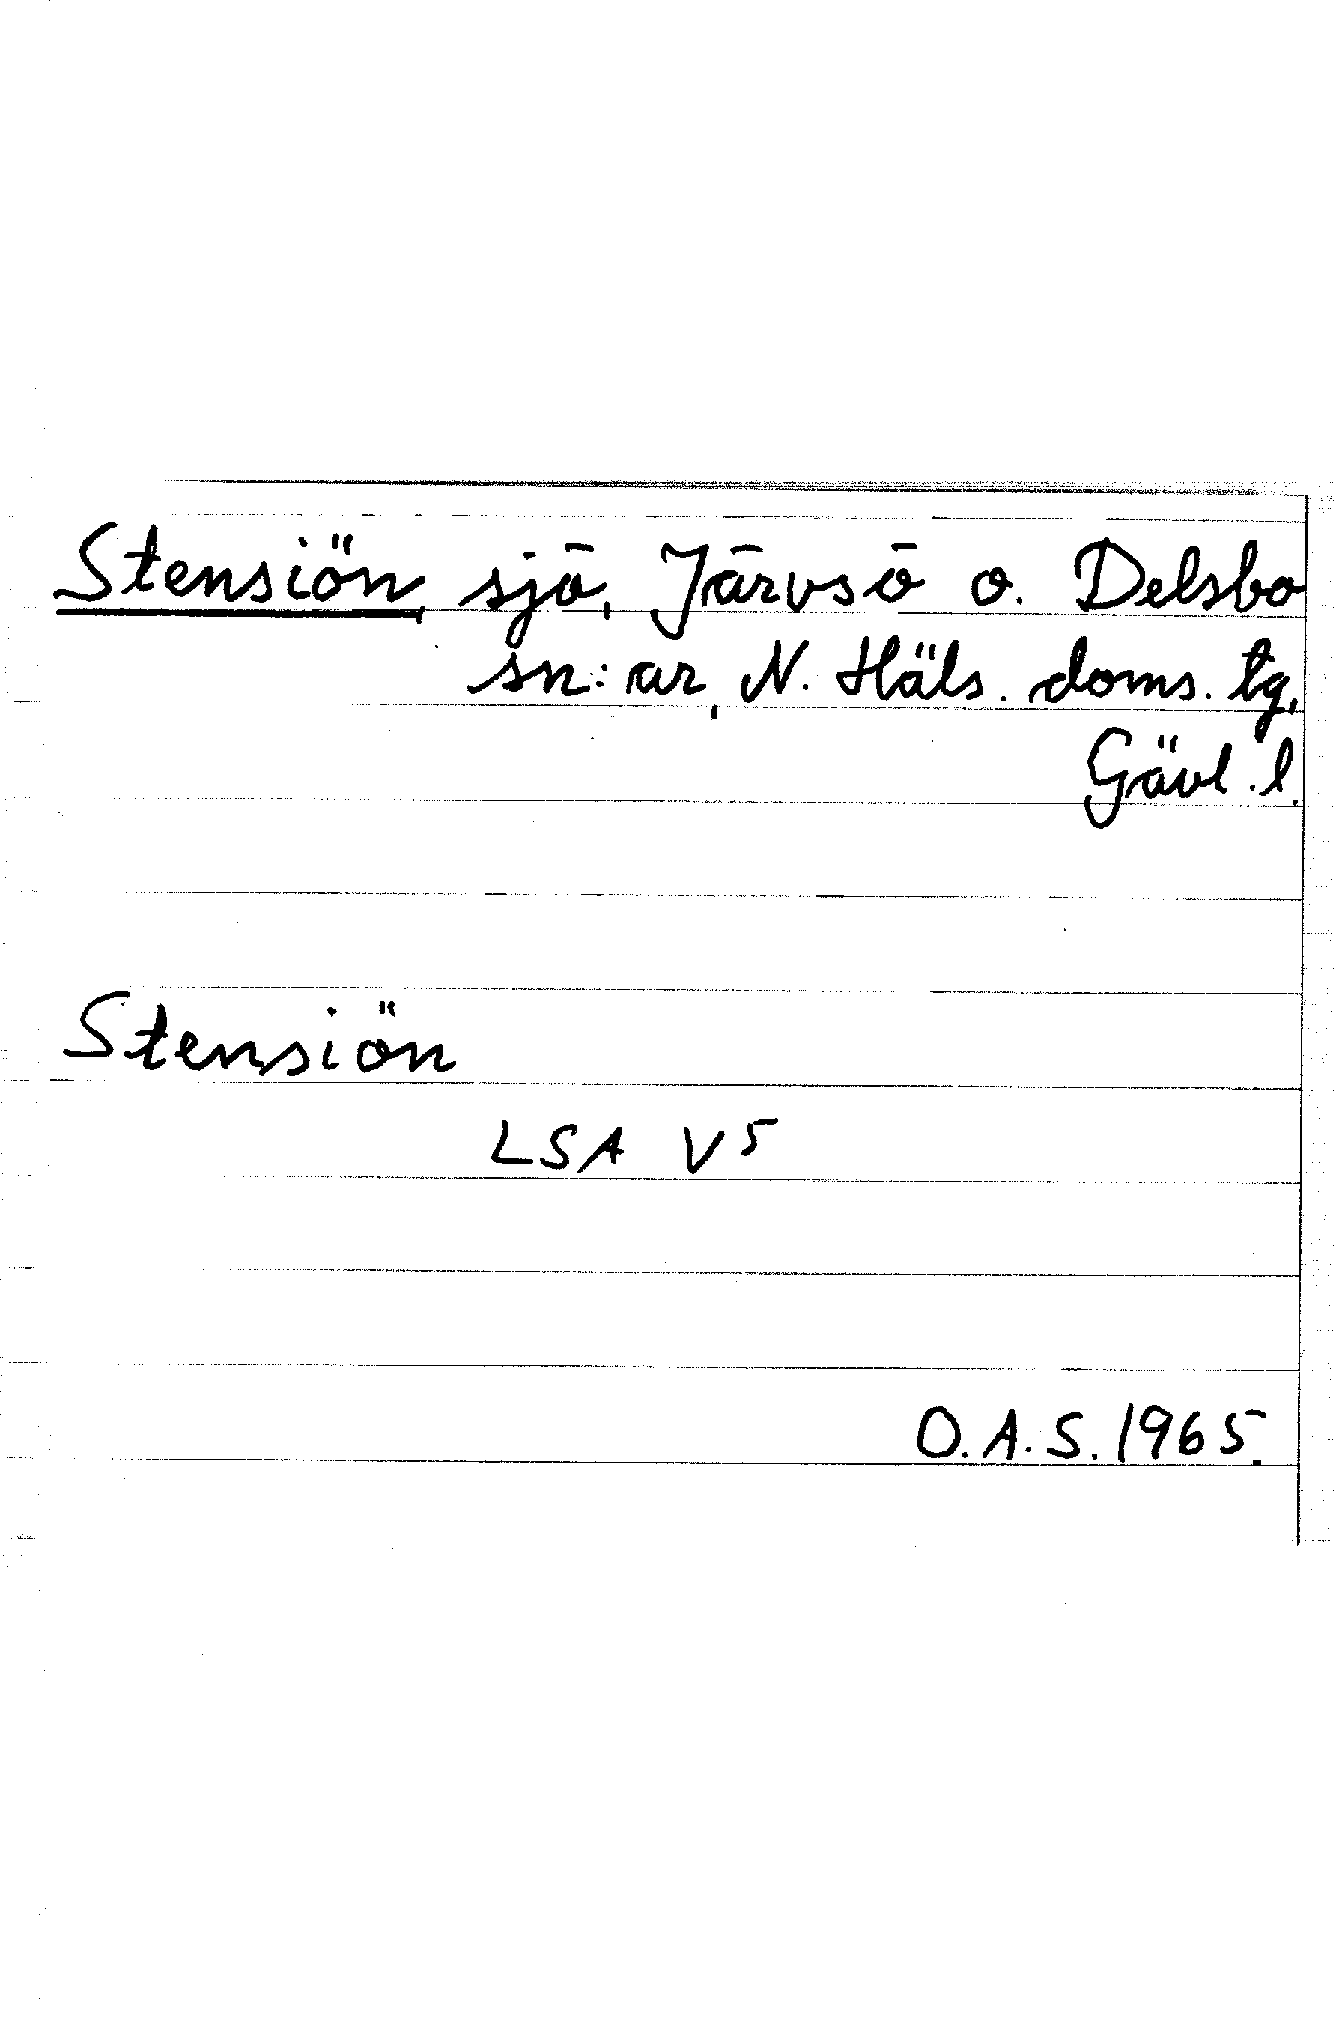 Stensiön, sjö, Järvsö o. Delsbo
sn:ar, N. Häls. doms. tg,
Gävl. l.
Stensiön
LSA V5
O.A.S. 1965.